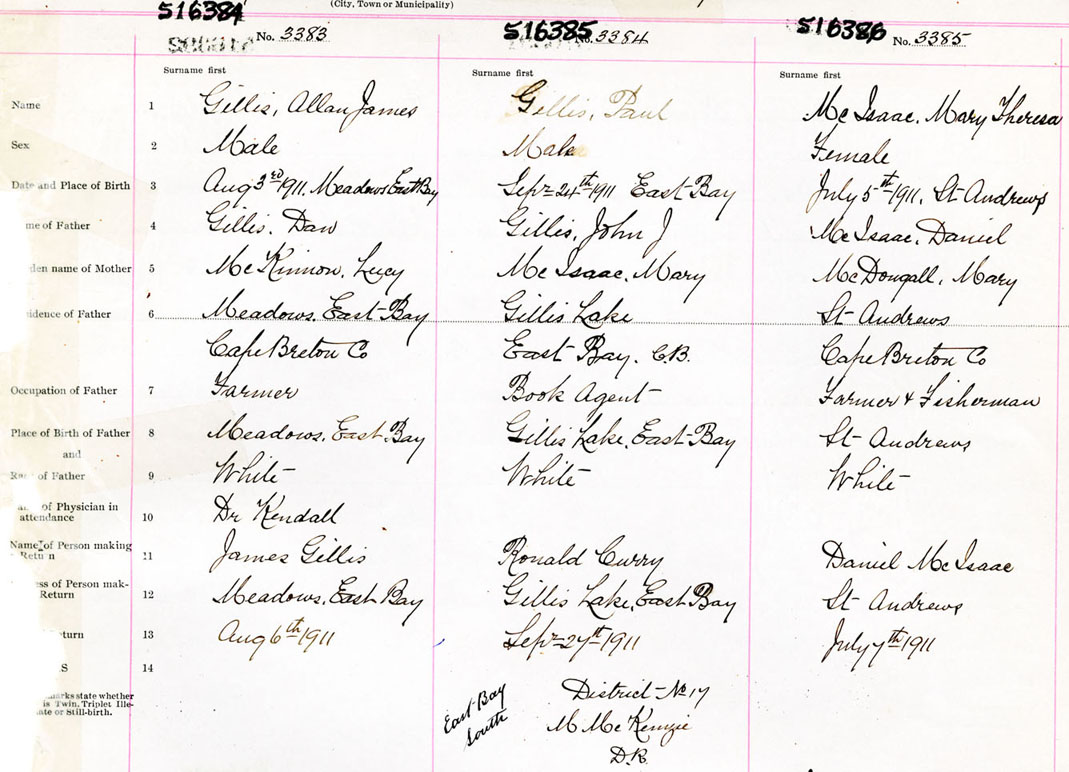 (City, Town or Municipality)
516384 516385 516386
No. 3383 No. 3384 No. 3385
Surname first Surname first Surname first
Name 1 Gillis, Allan James Gillis, Paul Mc Isaac, Mary Theresa
Sex 2 Male Male Female
Date and Place of Birth 3 Aug 3rd 1911, Meadows East Bay Sept 24th 1911 East Bay July 5th 1911, St Andrews
me of Father 4 Gillis, Dan Gillis, John J Mc Isaac, Daniel
den name of Mother 5 Mc Kinnon, Lucy Mc Isaac, Mary McDougall, Mary
idence of Father 6 Meadows, East Bay Gillis Lake St Andrews
Cape Breton Co East Bay, C.B. Cape Breton Co
Occupation of Father 7 Farmer Book Agent Farmer & Fisherman
Place of Birth of Father 8 Meadows, East Bay Gillis Lake, East Bay St Andrews
and
of Father 9 White White White
of Physician in
attendance 10 Dr Kendall
Name of Person making
Return 11 James Gillis Ronald Curry Daniel Mc Isaac
ess of Person mak-
Return 12 Meadows, East Bay Gillis Lake, East Bay St Andrews
eturn 13 Aug 6th 1911 Sept 27st 1911 July 7th 1911
S 14
arks state whether
is Twin, Triplet Ille-
ate or Still-birth.
East Bay
South
District No 17
M Mc Kenzie
D.R.